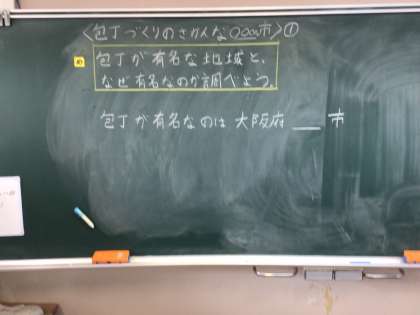 〈包丁づくりのさかんな○○○市〉①
め
包丁が有名な地域と、
なぜ有名なのか調べよう。
包丁が有名なのは大阪府___市